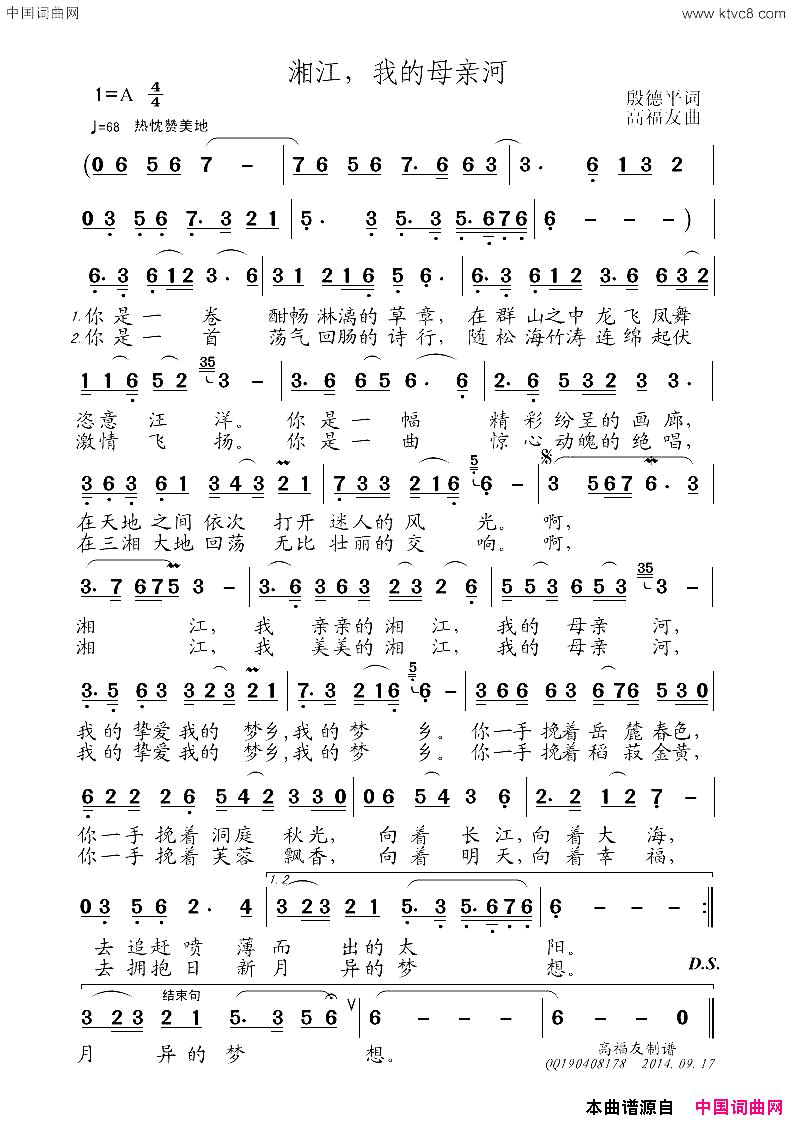 中国词曲网
www.ktvc8.com
湘江，我的母亲河
1=A 4/4
殷德平词
高福友曲
♩=68 热忱赞美地
(0 6 5 6 7 - | 7 6 5 6 7. 6 6 3 | 3. 6 1 3 |
0 3 5 6 7. 3 2 1 | 5. 3 5. 3 5. 6 7 6 | 6 - - - )
6. 3 6 1 2 3. 6 | 3 1 2 1 6 5 6. | 6. 1 6 1 2 3. 6 6 3 2 |
1.你是一 卷 酣畅淋漓的草章，在群山之中龙飞凤舞
2.你是一 首 荡气回肠的诗行，随松海竹涛连绵起伏
1 1 6 5 2 35 3 - | 3. 6 6 5 6. 6 | 2. 6 5 3 2 5 3 |
恣意 汪 洋。 你是一 幅 精彩纷呈的画廊，
激情 飞 扬。 你是一 曲 惊心动魄的绝唱，
3 6 3 6 1 3 4 3 2 1 | 7 3 3 2 1 6 5 6 - | 3 5 6 7 6. 3 |
在天地之间依次 打开迷人的风 光。啊，
在三湘大地回荡 无比壮丽的交 响。啊，
3. 7 6 7 5 3 - | 3. 6 3 6 3 2 3 2 6 | 5 5 3 6 5 3 35 3 - |
湘 江， 我 亲亲的湘 江， 我的 母亲 河，
湘 江， 我 美美的湘 江， 我的 母亲 河，
3. 5 6 3 3 2 3 2 1 | 7. 3 2 1 6 5 6 - | 3 6 6 6 3 6 6 5 5 3 0 |
我的挚爱我的 梦乡，我的梦 乡。你一手挽着岳麓春色，
我的挚爱我的 梦乡，我的梦 乡。你一手挽着稻菽金黄，
6 2 2 2 3 5 4 2 3 3 0 | 0 6 5 4 3 6 | 2. 2 1 2 7 - |
你一手挽着洞庭 秋光， 向着 长江，向着大 海，
你一手挽着芙蓉 飘香， 向着 明天，向着幸 福，
1.2
0 3 5 6 2. 4 | 3 2 3 2 1 5. 3 5. 6 7 6 | 6 - - - :||
去追赶喷 薄而 出的太 阳。
去拥抱日 新月 异的梦 想。
D.S.
结束句
3 2 3 2 1 5. 3 5 6 V | 6 - - - | 6 - - 0 ||
月 异的梦 想。
高福友制谱
QQ190408178 2014.09.17
本曲谱源自 中国词曲网